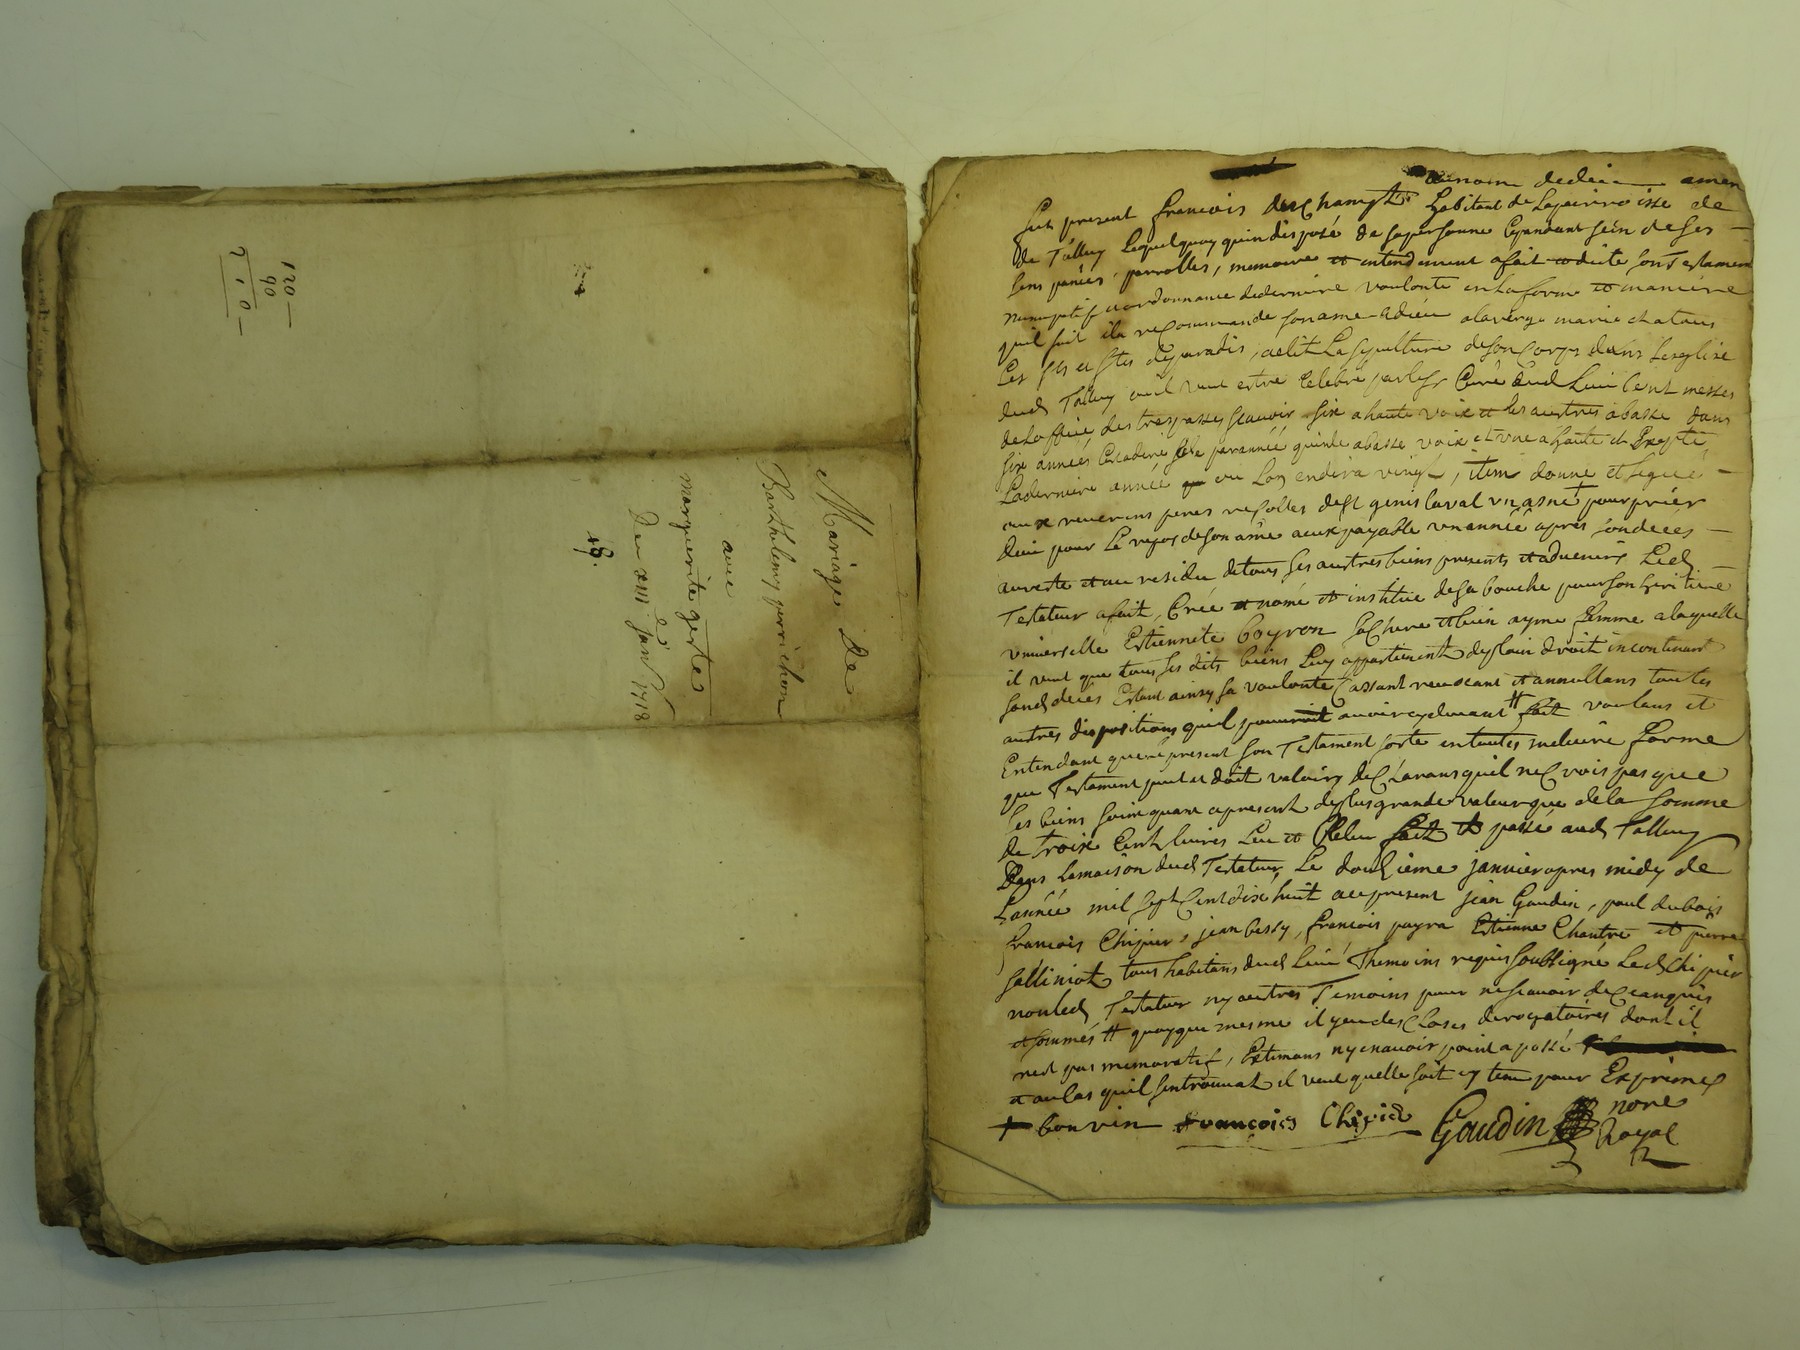 120 —
90
210 —
Mariage De
Barthelemy perrichon
avec
marguerite gertes
Du xiii janr 1718
19.
au nom de dieu amen
fut present francois deschamps habitant de la parroisse de
de Talluy lequel quoy quindisposé de sa personne Cependant sein de ses —
sens pancés, parrolles, memoire et entendement a fait et dicté son Testament
nuncupatif et ordonnance de derniere voulonté en la forme et maniere
quil suit il a recommande son ame a dieu a la vierge marie et a tous
Les sts et stes de paradis, a elit La sepulture de son Corps dans Leglise
dud Talluy ou il veut estre Celebré par le sr Curé dud Lieu Cent messes
de Loffice des trespassez scavoir six a haute voix et les austres a basse dans
six années Cest a dire par année quinse a basse voix et une a haute et Excepté
La derniere année ou Lon en dira vingt, item donne et legue —
aux reverens peres recoltes de st genis laval un asne + pour prier
dieu pour Le repos de son ame a eux payable un année apres son deces —
au reste et au residu de tous ses austres biens presents et advenirs Led
Testateur a fait, Créé et nomé et institue de sa bouche pour son heritiere
universelle Estiennete boyron sa Chere et bien aymé femme a laquelle
il veut que tous ses dits biens Luy appartienent de plain droit incontinant
sond deces Estant ainsy sa voulonté Cassant revocant et annullans toutes
autres dispositions quil pourroit avoir cy devant # fait voulans et
Entendant que ce present son Testament sorte en toutes melieure forme
que Testament peut et doit valoir, declarans quil ne Crois pas que
ses biens soient quant a present de plus grande valeur que de la somme
de Trois Cent livres Leu et Releu fait et passé aud Talluy
Dans La maison dud Testateur, Le douzieme janvier apres midy de
Lannée mil sept Cent dix huit au present jean Gaudin, paul dubois
francois Chipier, jean bessy, francois payra Estienne Chantre et pierre
tous habitans dud Lieu Themoins requis soussigné Led Chipier
non led Testateur ny autres Temoins pour ne scavoir de Ce enquis
et sommés # quoyque mesme il y eu des Closes derogatoires dont il
nest pas memoratif, Estimans ny en avoir point aposé
et au Cas quil sen trouvat il veut quelle soit cy tenu pour Exprimés
+ bon vin francois Chipier Gaudin
nore
Royal